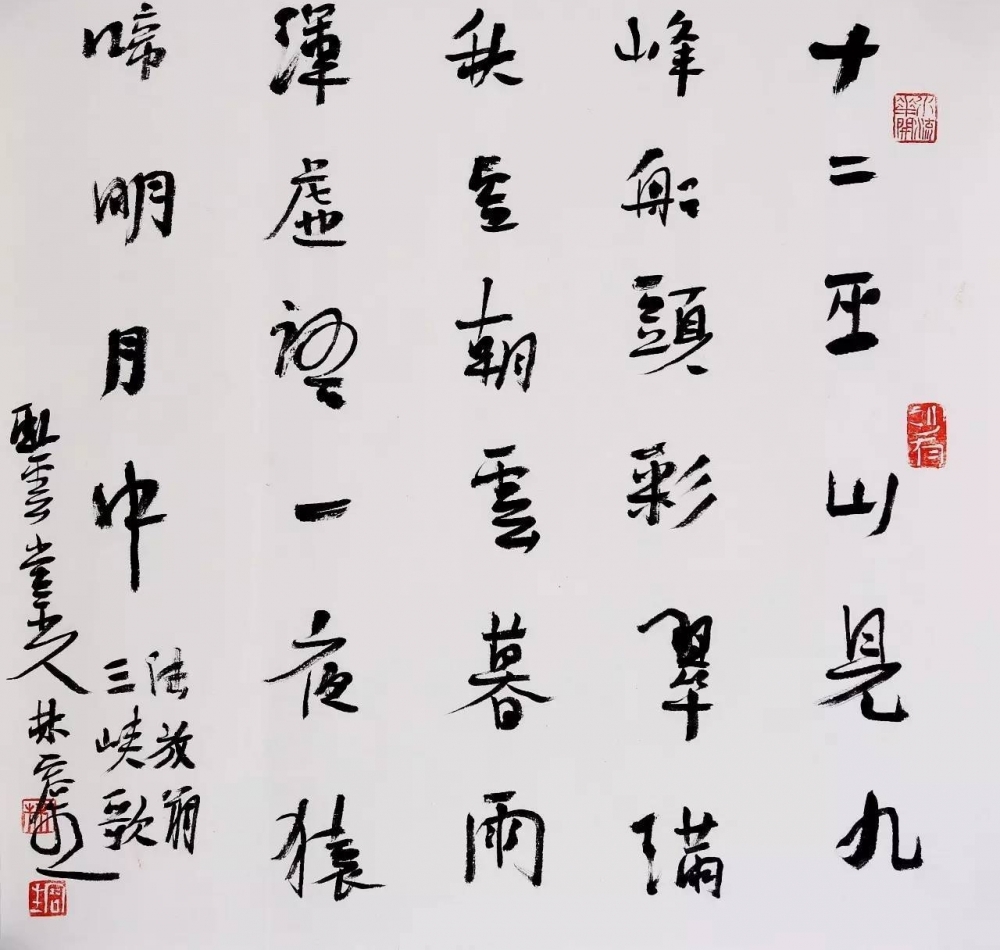 水流華開
十二巫山見九
峰船頭彩翠滿
秋空朝雲暮雨
渾虛語一夜猿
啼明月中
陸放翁
三峽歌
雲堂主人林